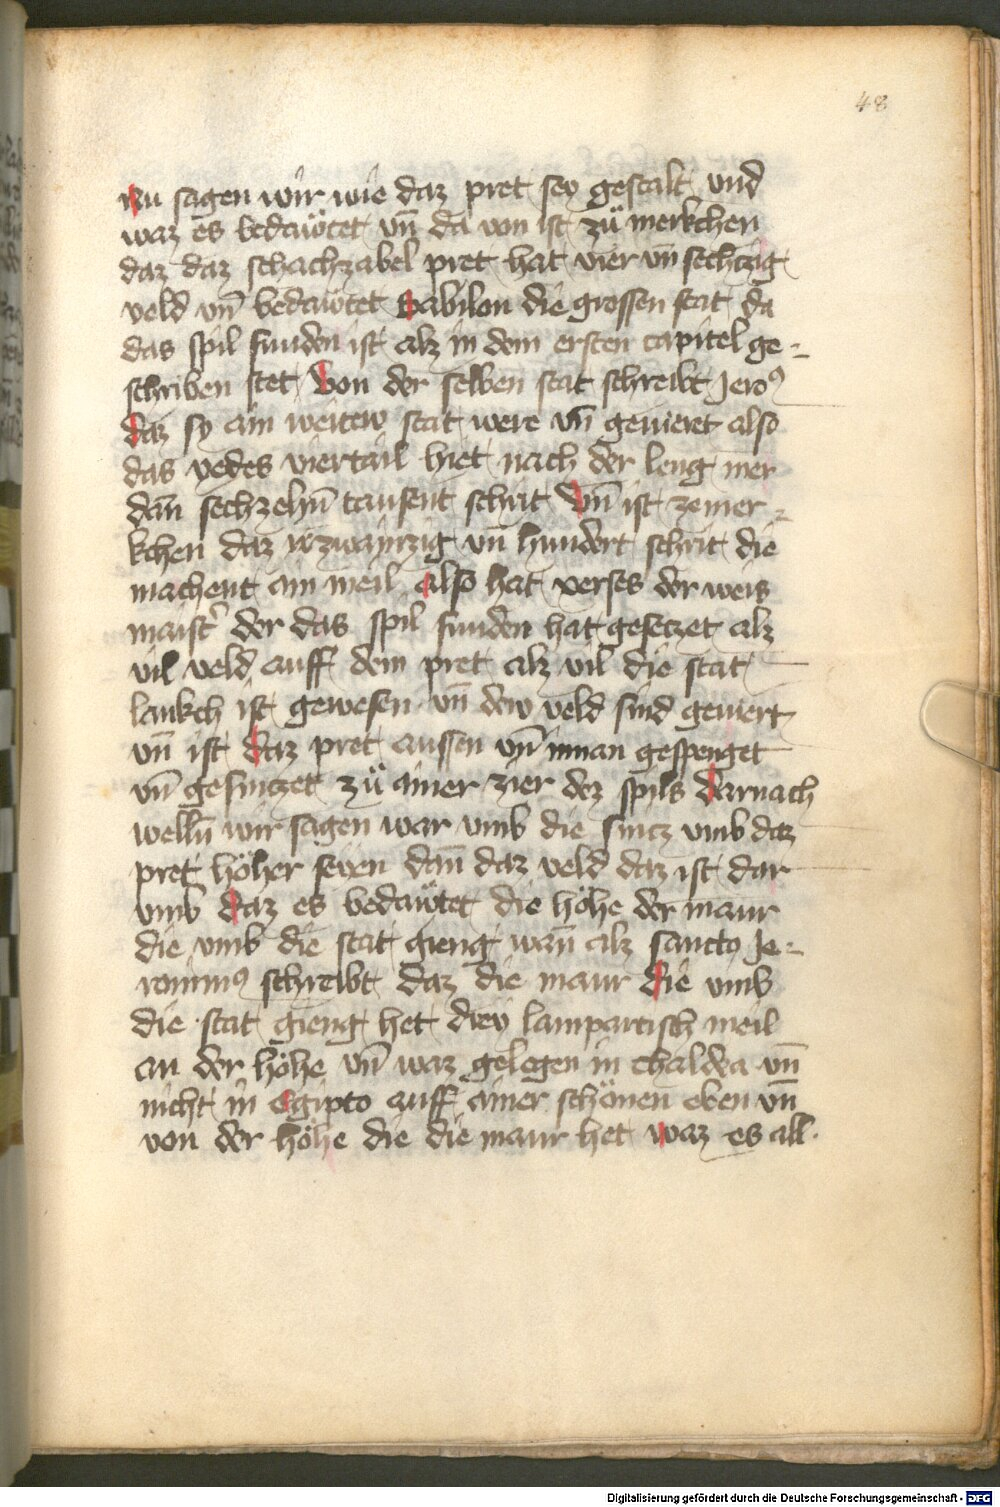 48
Nu sagen wir wie daz pret sey gestalt vnd
waz es bedawtet vn̄ da von ist zů merkchen
daz daz schachzabel pret hat vier vn̄ sechtzig
veld vn̄ bedäwtet Babilon die grossen stat da
das spil funden ist alz in dem ersten capitel ge-
schriben stet Von der selben stat schreibt Jeroꝰ
daz sy ain weitew stat were vn̄ geuieret also
das yedes viertail hiet nach der leng mer
dan̄ sechzehn̄ tausent schrit Vn̄ ist ze mer-
kchen daz zwaintzig vn̄ hundert schrit die
machent ain meil also hat xerses der weis
maistˀ der das spil funden hat gesetzet alz
vil veld auff dem pret alz vil die stat
lankch ist gewesen vn̄ dew veld sind geuiert
vn̄ ist daz pret aussen vn̄ innan gespenget
vn̄ gesintzet zů ainer zier dez spils darnach
welln̄ wir sagen war vmb die sintz vmb daz
pret höher seyen dan̄ daz veld daz ist dar
vmb daz es bedäwtet die höhe der maur
die vmb die stat gieng wan̄ alz sanctꝰ Je-
ronimꝰ schreibt daz die maur die vmb
die stat gieng het drey lampartisch meil
an der höhe vn̄ waz gelegen in chaldea vn̄
nicht in egipto auff ainer schönen eben vn̄
von der höhe die die maur het waz es all
Digitalisierung gefördert durch die Deutsche Forschungsgemeinschaft - DFG